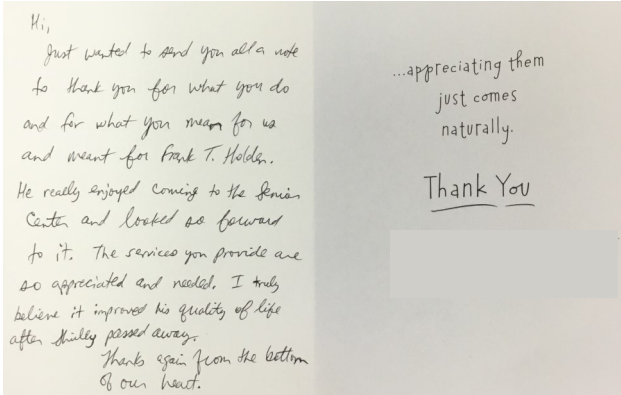 Hi,
Just wanted to send you all a note
to thank you for what you do
and for what you mean for us
and meant for Frank T. Holden.
He really enjoyed coming to the Senior
Center and looked so forward
to it. The services you provide are
so appreciated and needed. I truly
believe it improved his quality of life
after Shirley passed away.
Thanks again from the bottom
of our heart.
...appreciating them
just comes
naturally.
Thank You